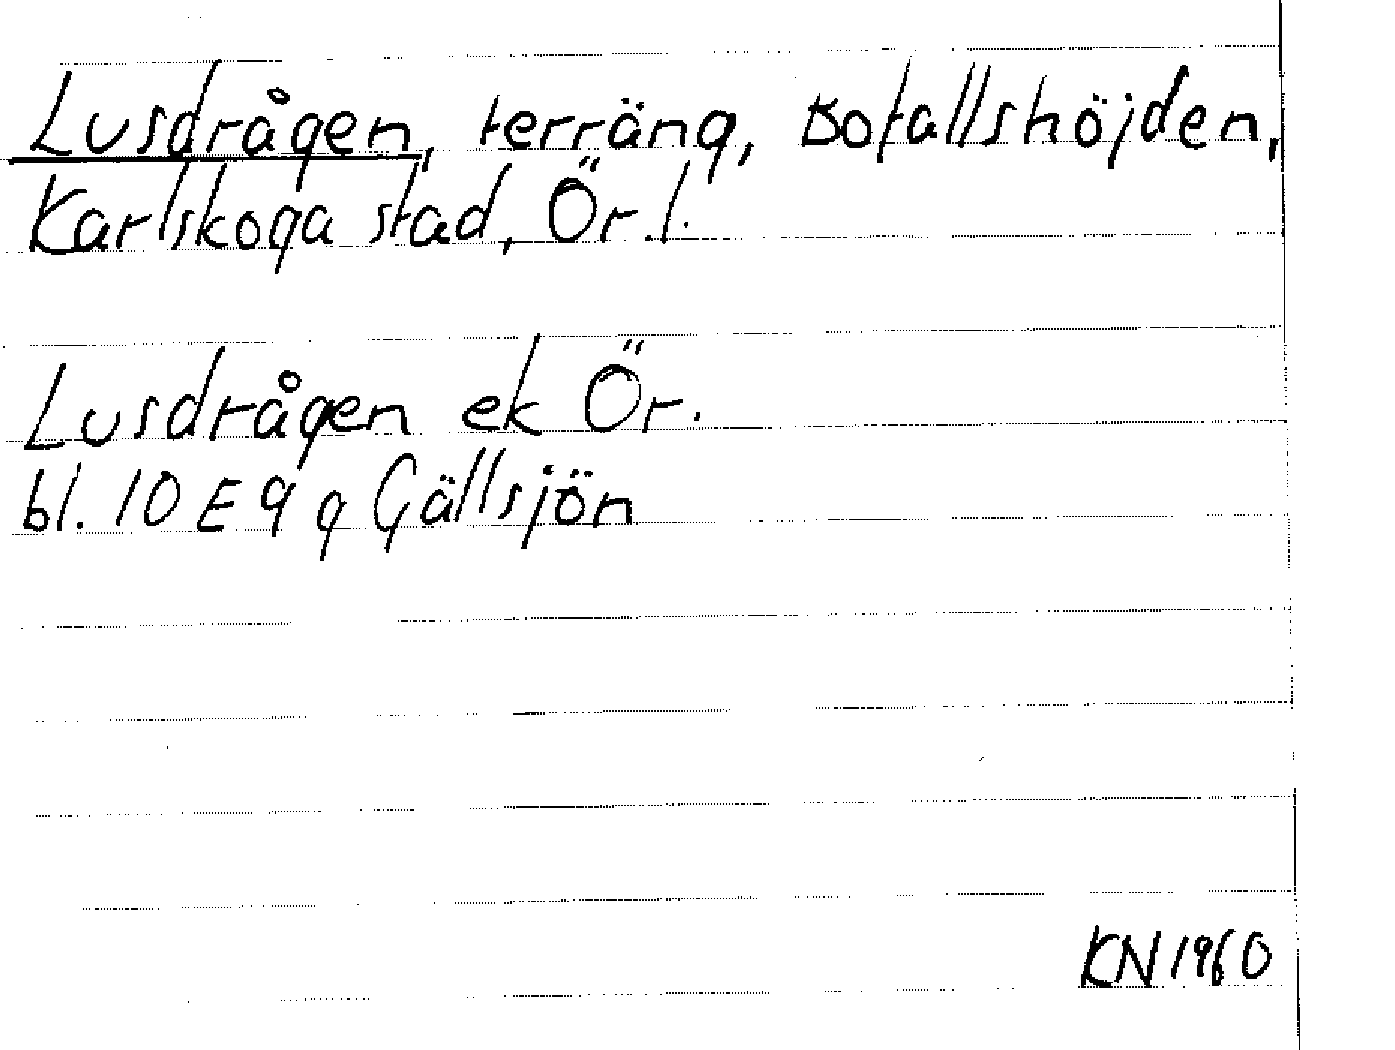 Lusdrågen, terräng, Bofallshöjden,
Karlskoga stad, Ör.l.
Lusdrågen ek Ör.
bl. 10 E 9 g Gällsjön
KN 1960